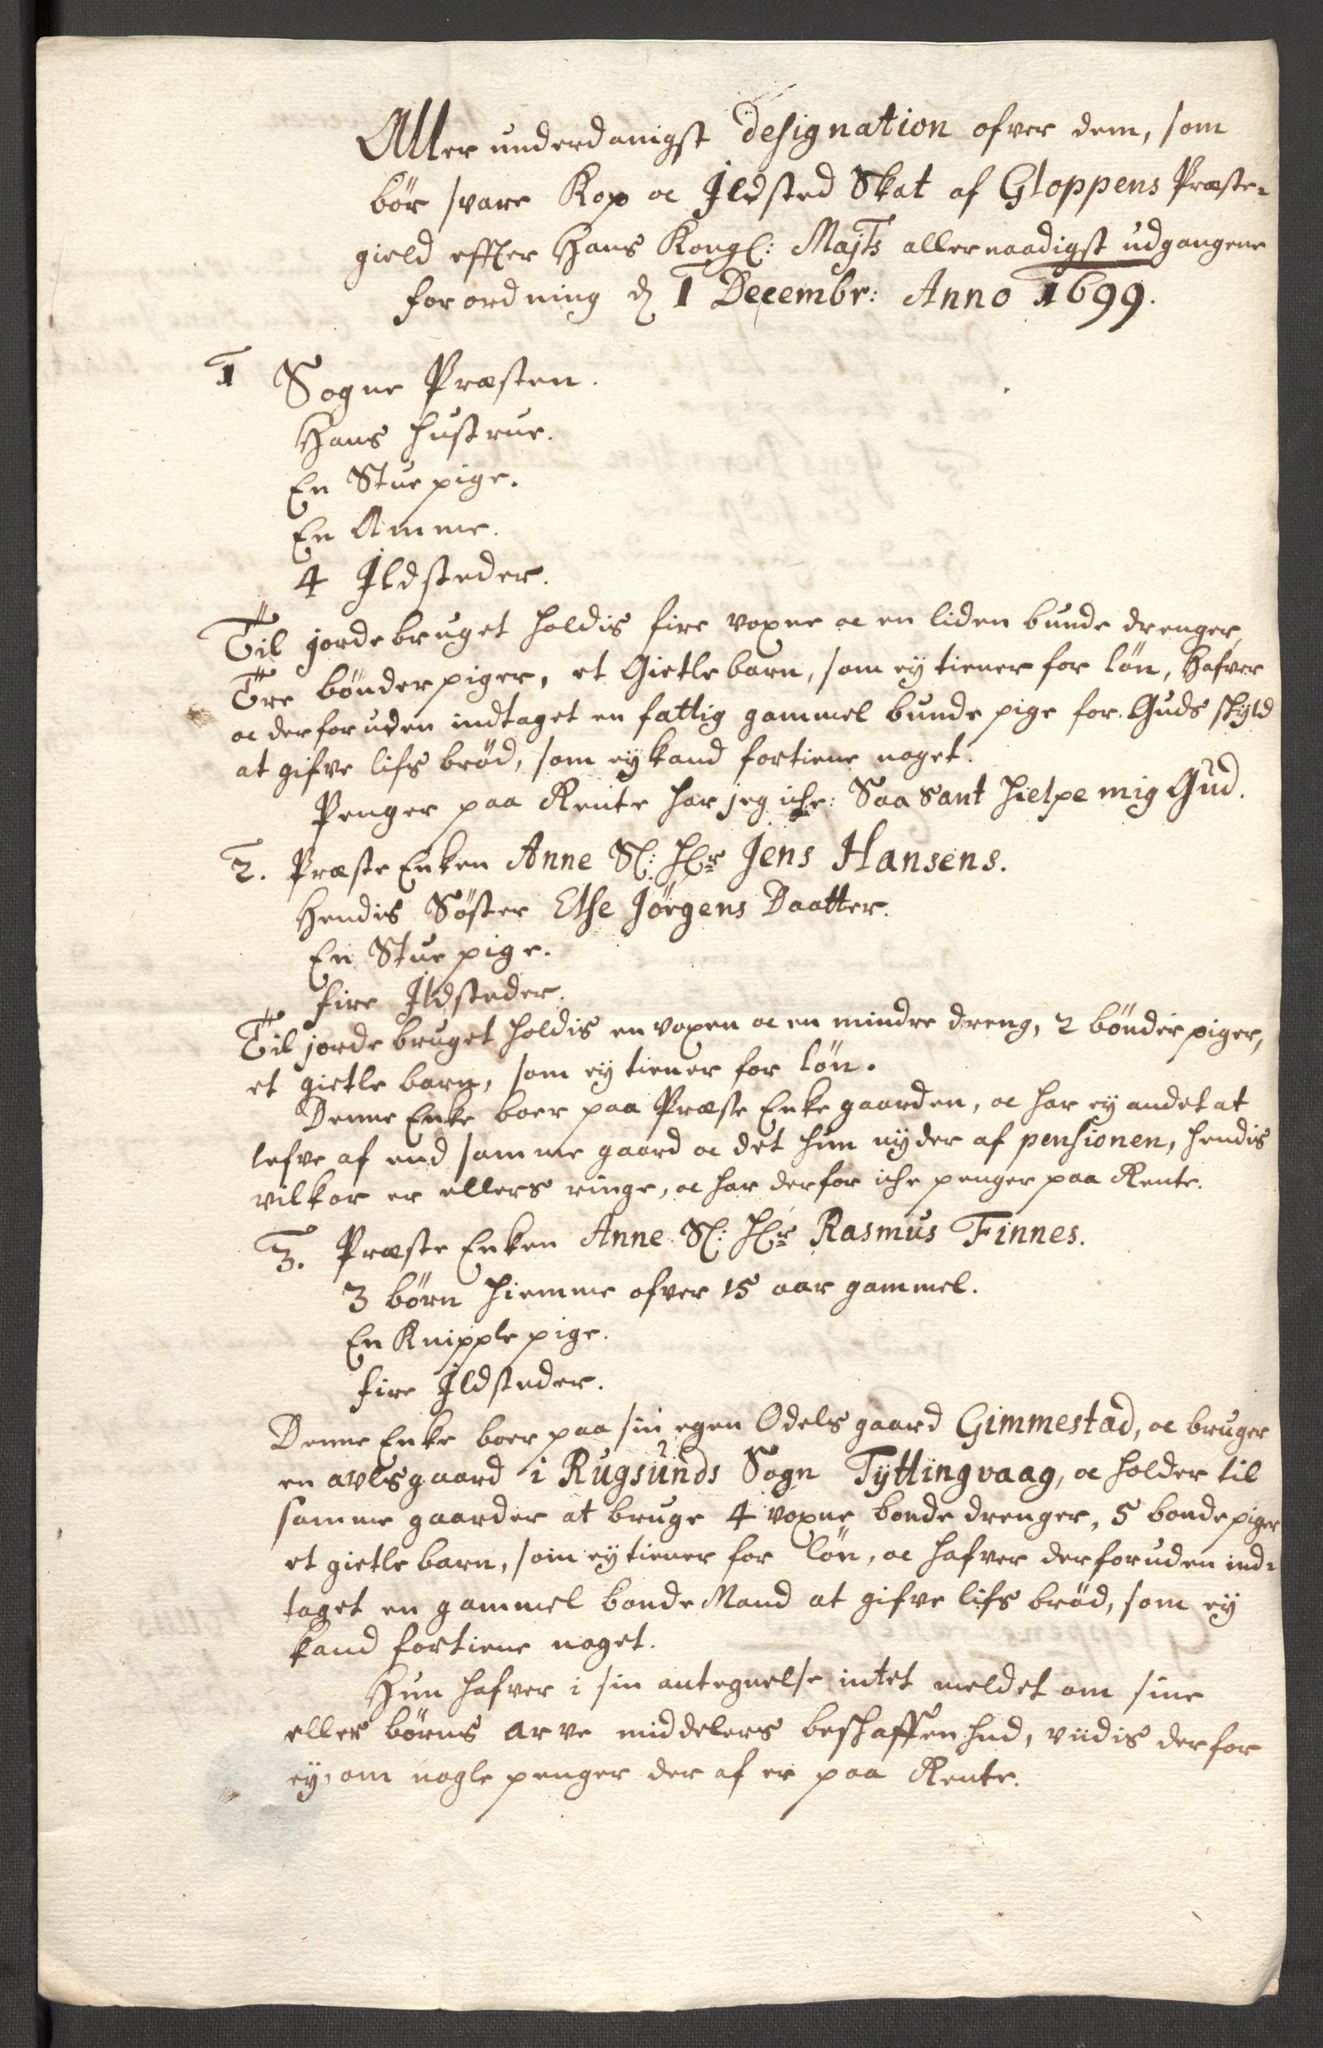 Aller underdanigst designation ofver dem, som
bör svare Kop oc Ildsted Skat af Gloppens Præste-
gield effter Hans Kongl: Majts allernaadigst udgangene
forordning d 1 Decembr: Anno 1699.
1 Sogne Præsten.
Hans hustrue.
En Stuepige.
En Amme.
4 Ildsteder.
Til jordebruget holdis fire voxne oc en liden bunde drenger,
Tre bönderpiger, et Gietlebarn, som ey tiener for lön, Hafver
oc derforuden indtaget en fattig gammel bunde pige for Guds skyld
at gifve lifs bröd, som ey kand fortiene noget.
Penger paa Rente har jeg iche: Saa Sant hielpe mig Gud.
2. Præste Enken Anne Sl: Hrs Jens Hansens.
Hendis Söster Else Jörgens Daatter.
En Stuepige.
fire Ildsteder.
Til jordebruget holdis en voxen oc en mindre dreng, 2 bönder piger,
et gietle barn, som ey tiener for lön.
Denne Enke boer paa Præste Enke gaarden, oc har ey andet at
lefve af end samme gaard oc det hun nyder af pensionen, hendis
vilkor er ellers ringe, oc har derfor iche penger paa Rente.
3. Præste Enken Anne Sl: Hrs Rasmus Finnes.
3 börn hiemme ofver 15 aar gammel.
En Knipplepige.
fire Ildsteder.
Denne Enke boer paa sin egen Odelsgaard Gimmestad, oc bruger
en avlsgaard i Rugsunds Sogn Tyttingvaag, oc holder til
samme gaarder at bruge 4 voxne bonde drenger, 5 bonde piger
et gietlebarn, som ey tiener for lön, oc hafver derforuden ind-
taget en gammel bonde Mand at gifve lifs bröd, som ey
kand fortiene noget.
Hun hafver i sin antegnelse intet meldet om sine
eller börns arve middelers beskaffenhed, viidis derfor
ey, om nogle penger der af er paa Rente.